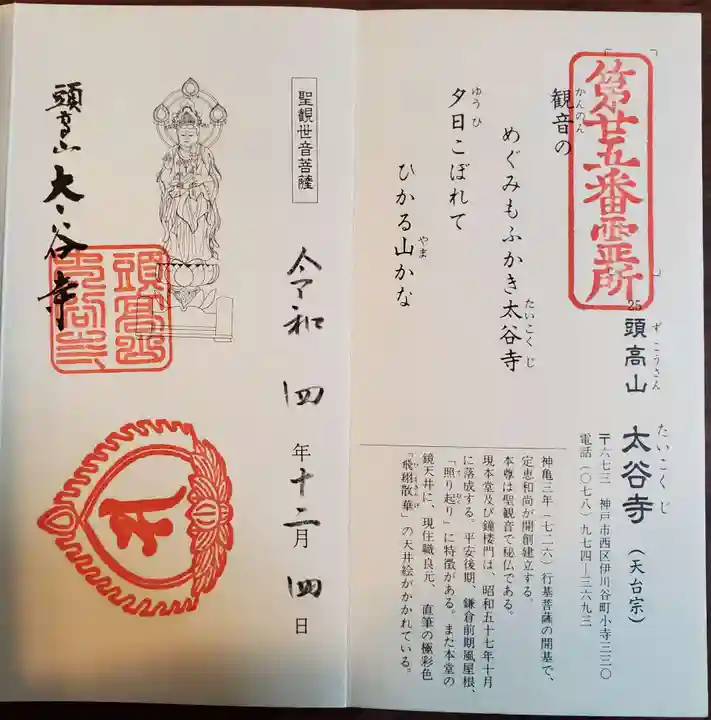 第廿五番霊所
観音の
かんのん
めぐみもふかき太谷寺
たいこくじ
夕日こぼれて
ゆうひ
ひかる山かな
やま
25
頭高山
ずこうさん
太谷寺
たいこくじ
(天台宗)
〒六七三 神戸市西区伊川谷町小寺三三〇
電話(〇七八)九七四―三六九三
神亀三年(七二六)行基菩薩の開基で、
定恵和尚が開創建立する。
本尊は聖観音で秘仏である。
現本堂及び鐘楼門は、昭和五十七年十月
に落成する。平安後期、鎌倉前期風屋根、
「照り起り」に特徴がある。また本堂の
鏡天井に、現住職良元、直筆の極彩色
「飛翔散華」の天井絵がかかれている。
聖観世音菩薩
令和四年十二月四日
頭高山太谷寺